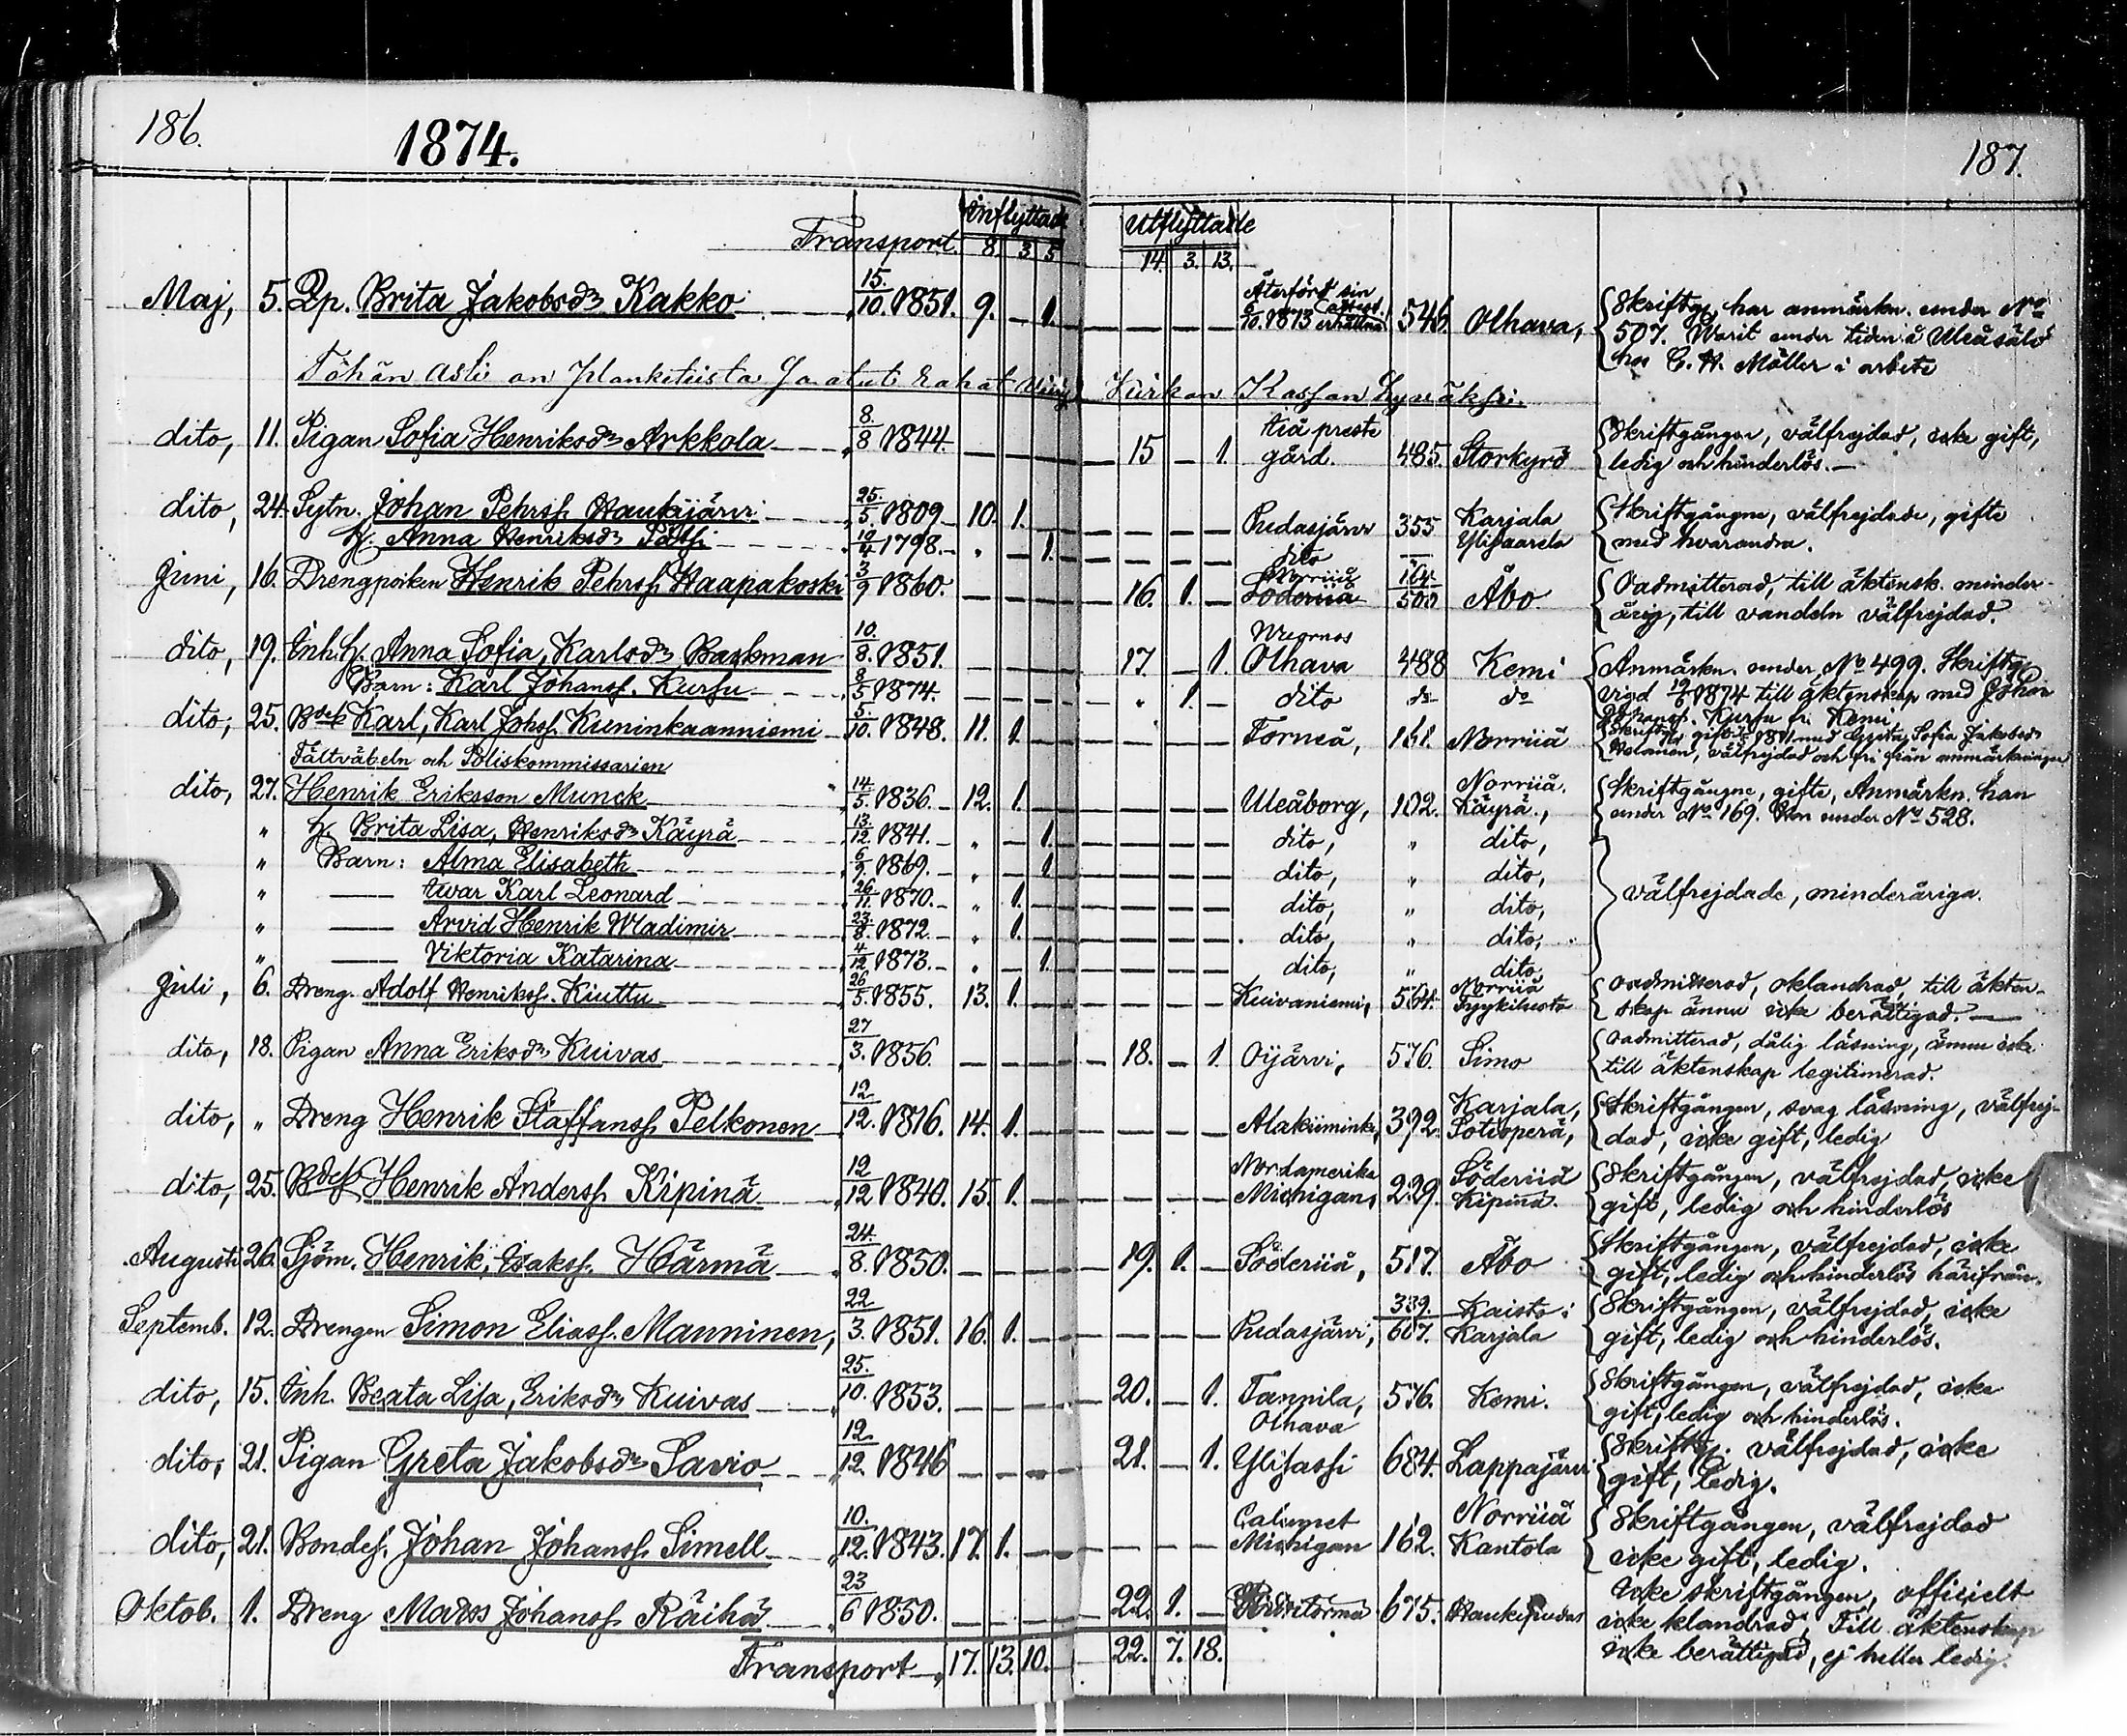 186.
1874.
187.
inflyttade
utflyttade
Transport. 8. 3 5
14. 3. 13.
Återförd sin
Maj, 5. Pp. Brita Jakobsdr Kakko 15./10. 1851. 9. — 1. — — — 10. 1873 erhållna 546. Olhava, Skriftg. har anmärkn. under No
507. Warit under tiden å Uleåsåld
hos C. H. Möller i arbete
Töhän asti on Kirkon Kassan
dito, 11. Pigan Sofia Henriksdr Arkkola 8./8 1844. — — — 15 — 1. Iiå preste
gård. 485. Storkyrö Skriftgången, välfrejdad, icke gift,
ledig och hinderlös. —
dito, 24. Sytn. Johan Pehrss. Haukijärvi 25./5. 1809 10. 1. — — — — Pudasjärvi 355 Karjala
Ylisaarela Skriftgångne, välfrejdade, gifte
H. Anna Henriksdr 10/4 1798. " — 1. — — — dito — med hvarandra.
Juni, 16. Drengpoiken Henrik Pehrss. Haapakoski 3/9 1860. — — — 16. 1. — Norriiå
Söderiiå 164./500 Åbo Oadmitterad, till äktensk. minder-
årig, till vandeln välfrejdad.
dito, 19. Inh. H. Anna Sofia, Karlsdr Backman 10./8. 1851. — — — 17. — 1. Wuornos
Olhava 488 Kemi Anmärkn. under No 499. Skriftg.
Barn: Karl Johanss. Kursu 8/5 1874. — — — " 1. — dito do do vigd 19/6 1874 till äktenskap med Johan
Johanss. Kursu fr. Kemi
dito, 25. Bdes. Karl, Karl Johss. Kuninkaanniemi 5./10. 1848. 11. 1. — — — — Torneå, 161. Norriiå Skriftg. gift 1871 med Sofia Jakobsdr
Holanen, välfrejdad och fri från anmärkningar
Fältväbeln och Poliskommissarien
dito, 27. Henrik Eriksson Munck 14/5. 1836. 12. 1. — — — — Uleåborg, 102. Norriiå.
Käyrä, Skriftgångne, gifte, Anmärkn. han
under No 169. Hon under No 528.
" H. Brita Lisa, Henriksdr Käyrä 13./12. 1841. " — 1. — — — dito, " dito,
" Barn: Alma Elisabeth 6/9. 1869. " — 1 — — — dito, " dito,
" — Iwar Karl Leonard 26/11. 1870. " 1. — — — — dito, " dito, välfrejdade, minderåriga.
" — Arvid Henrik Wladimir 23./8. 1872 " 1. — — — — dito, " dito,
" — Viktoria Katarina 4/12 1873. " — 1. — — — dito, " dito,
Juli, 6. Dreng. Adolf Henrikss. Kiuttu 26/5. 1855. 13. 1. — — — — Kuivaniemi, 564. Norriiå
Tyykiluoto oadmitterad, oklandrad, till äkten-
skap ännu icke berättigad. —
dito, 18. Pigan Anna Eriksdr Kuivas 27/3. 1856. — — — 18. — 1. Oijärvi, 576. Simo oadmitterad, dålig läsning, ännu icke
till äktenskap legitimerad.
dito, " Dreng Henrik Staffanss. Pelkonen 12/12. 1816. 14. 1. — — — — Alakiiminki, 392. Karjala,
Sotisperä, Skriftgången, svag läsning, välfrej-
dad, icke gift, ledig
dito, 25. Bdes. Henrik Anderss. Kipinä 12/12 1840. 15. 1. — — — — Nordamerika
Michigan, 229. Söderiiå
Kipinä. Skriftgången, välfrejdad, icke
gift, ledig och hinderlös
Augusti 26. Sjöm. Henrik, Isakss. Härmä 24./8. 1850. — — — 19. 1. — Söderiiå, 517. Åbo Skriftgången, välfrejdad, icke
gift, ledig och hinderlös härifrån.
Septemb. 12. Drengen Simon Eliass. Manninen, 22/3. 1851. 16. 1. — — — — Pudasjärvi, 339./607. Kaisto:
Karjala Skriftgången, välfrejdad, icke
gift, ledig och hinderlös.
dito, 15. Inh. Beata Lisa, Eriksdr Kuivas 25./10. 1853. — — — 20. — 1. Tannila,
Olhava 576. Kemi. Skriftgången, välfrejdad, icke
gift, ledig och hinderlös.
dito, 21. Pigan Greta Jakobsdr Savio 12./12. 1846 — — — 21. — 1. Ylitassi 684. Lappajärvi Skriftg. välfrejdad, icke
gift, ledig.
dito, 21. Bondes. Johan Johanss. Simell 10./12. 1843. 17. 1. — — — — Calumet
Michigan 162. Norriiå
Kantola Skriftgången, välfrejdad
icke gift, ledig.
Oktob. 1. Dreng Matss Johanss. Räihä 23/6 1850. — — — 22. 1. — 675. Haukipudas Icke skriftgången, officielt
icke klandrad, Till äktenskap
icke berättigad, ej heller ledig.
Transport 17. 13. 10. 22. 7. 18.